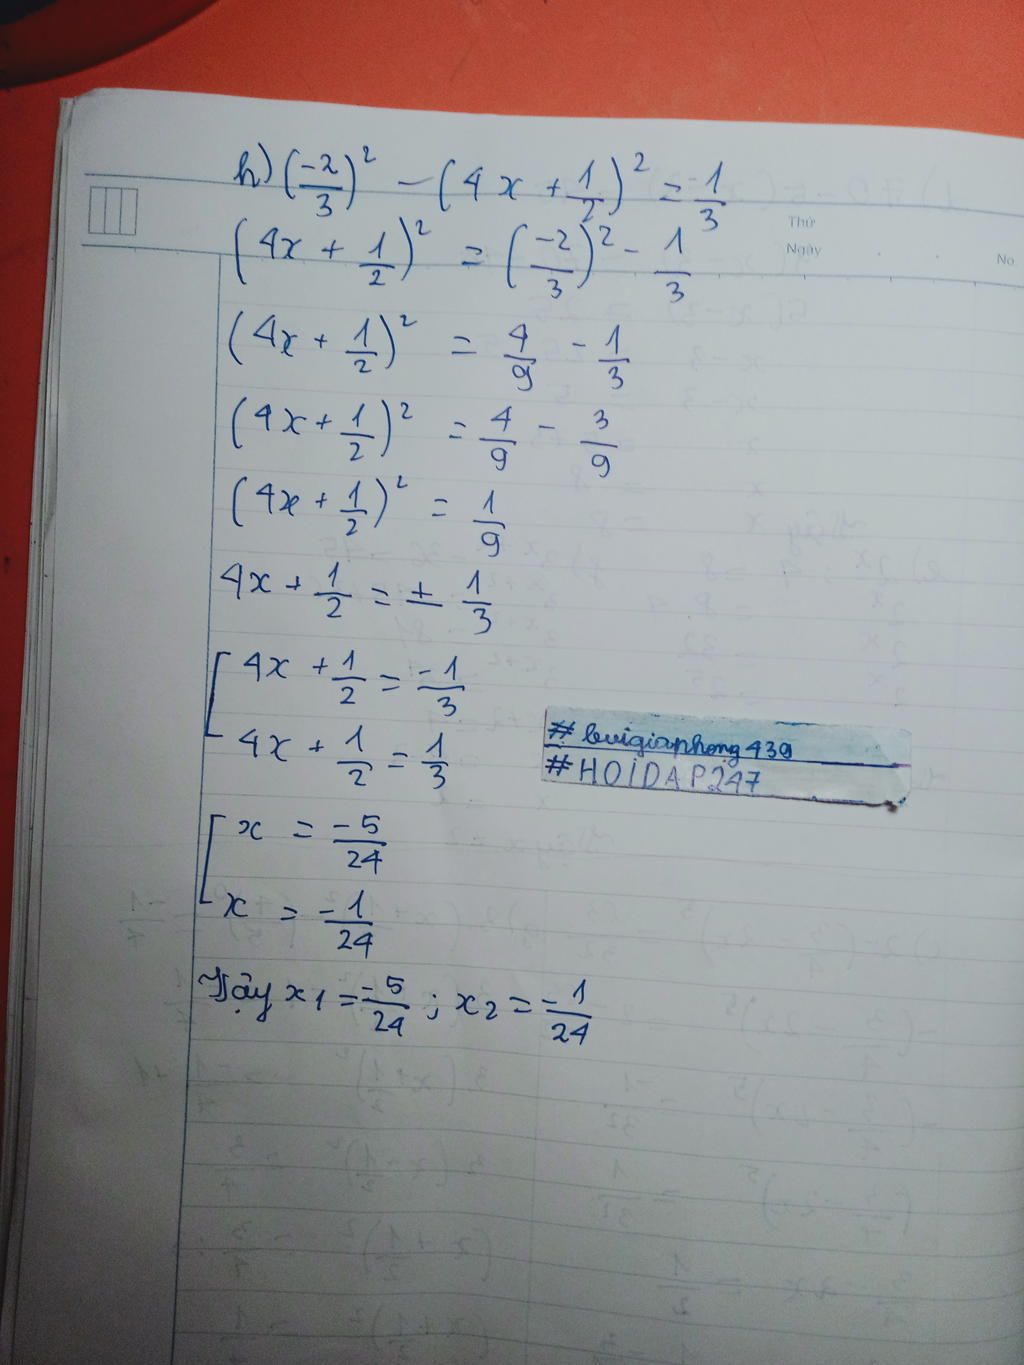 h) (-2/3)² - (4x + 1/2)² = 1/3
Thứ
Ngày
No.
(4x + 1/2)² = (-2/3)² - 1/3
(4x + 1/2)² = 4/9 - 1/3
(4x + 1/2)² = 4/9 - 3/9
(4x + 1/2)² = 1/9
4x + 1/2 = ± 1/3
[ 4x + 1/2 = -1/3
4x + 1/2 = 1/3
# buigiaphong439
# HOIDAP247
[ x = -5/24
x = -1/24
Vậy x1 = -5/24 ; x2 = -1/24